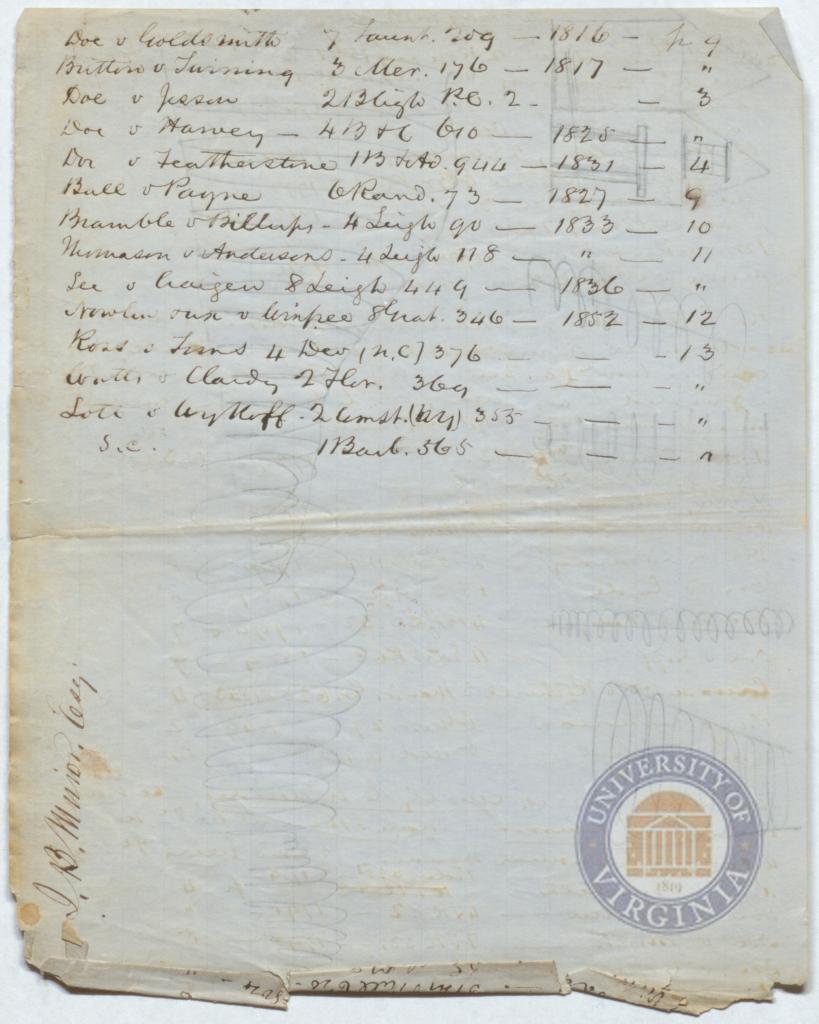 Doe v Goldsmith 7 Taunt. 209 — 1816 — p 9
Britton v Twining 3 Mer. 176 — 1817 — "
Doe v Jesson 2 Bligh P.C. 2 - — 3
Doe v Harvey — 4 B & C 610 — 1825 — "
Doe v Featherstone 1 B & Ad. 944 — 1831 — 4
Ball v Payne 6 Rand. 73 — 1827 — 9
Bramble v Billups - 4 Leigh 90 — 1833 — 10
Thomason v Andersons - 4 Leigh 118 — " — 11
See v Craigen 8 Leigh 449 — 1836 — "
Nowlin ux v Winfree 8 Grat. 346 — 1852 — 12
Ross v Toms 4 Dev (N.C) 376 — — — 13
Watts v Clardy 2 Flor. 369 — — — "
Lott v Wyckoff - 2 Comst. (NY) 355 — — — "
S.C. 1 Barb. 565 — — — "
J. B. Minor, Esq.
UNIVERSITY OF VIRGINIA
1819